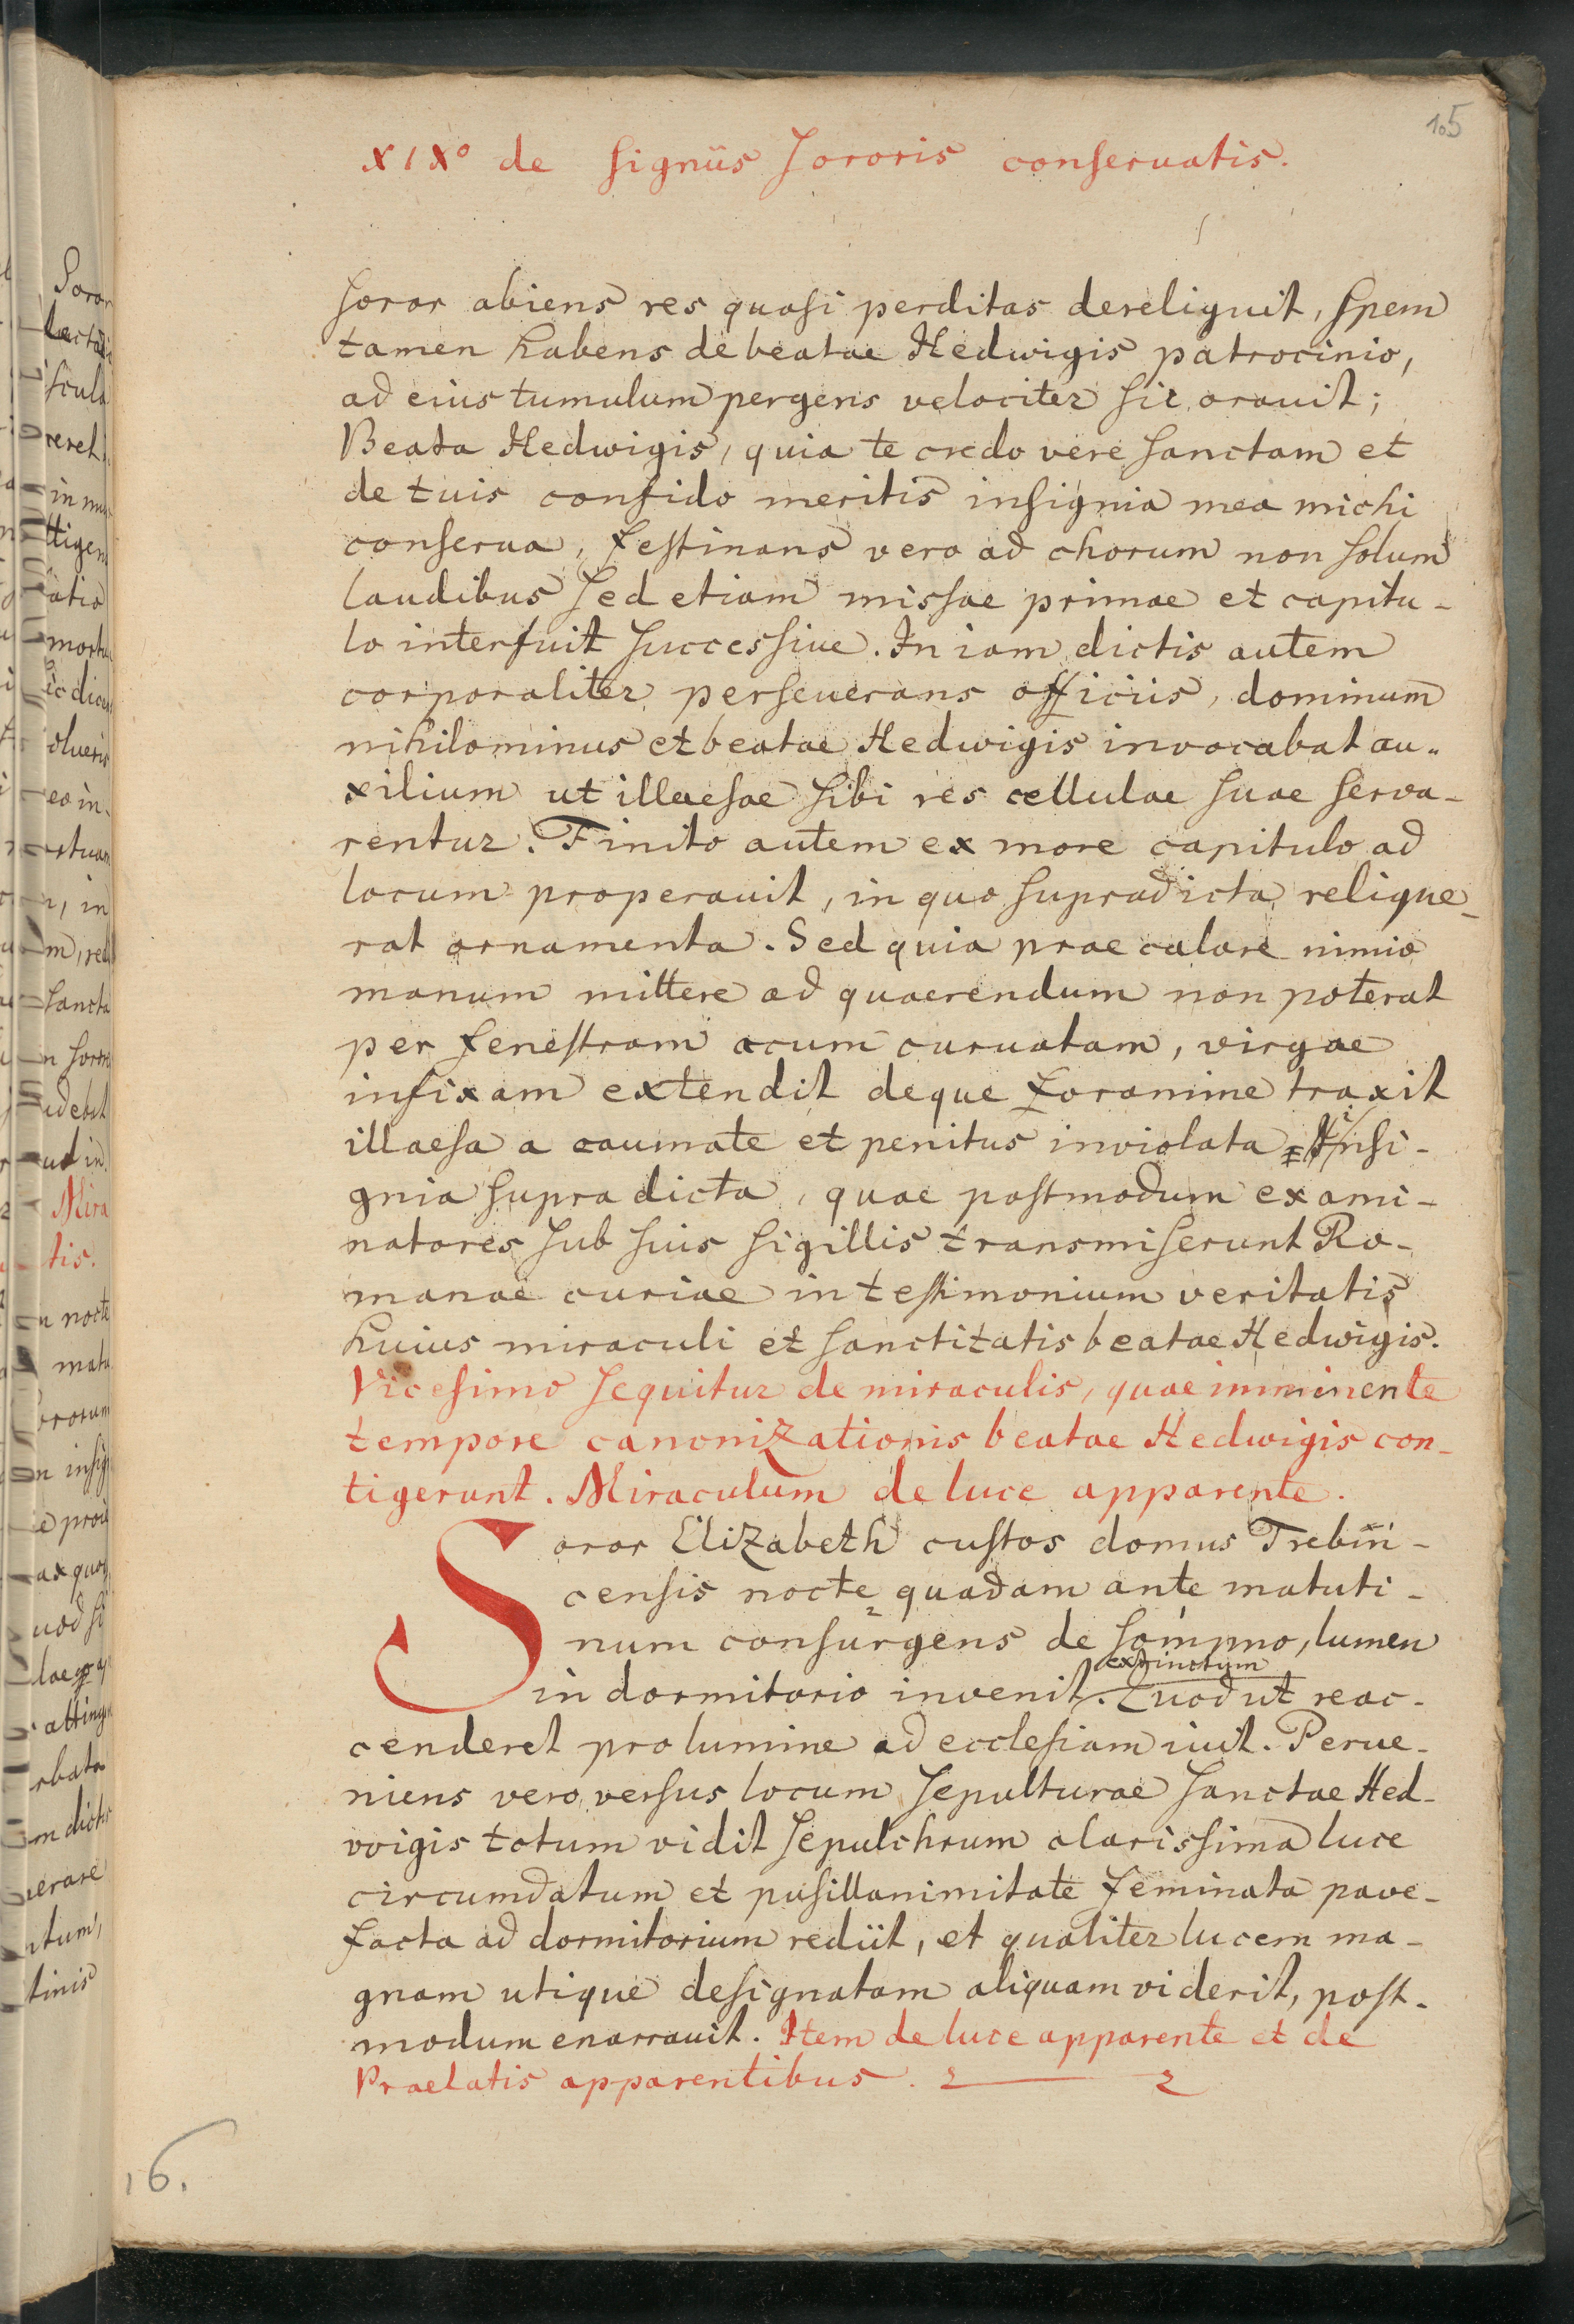 105
XIXº de signiis sororis conseruatis.
soror abiens res quasi perditas dereliquit, spem
tamen habens de beatae Hedwigis patrocinio,
ad eius tumulum pergens velociter sic orauit;
Beata Hedwigis, quia te credo vere sanctam et
de tuis confido meritis insignia mea michi
conserua, festinans vero ad chorum non solum
laudibus sed etiam missae primae et capitu-
lo interfuit successiue. In iam dictis autem
corporaliter perseuerans officiis, dominum
nihilominus et beatae Hedwigis invocabat au-
xilium ut illaesae sibi res cellulae suae serva-
rentur. Finito autem ex more capitulo ad
locum properauit, in quo supradicta relique-
rat ornamenta. Sed quia prae calore nimio
manum mittere ad quaerendum non poterat
per fenestram acum curuatam, virgae
infixam extendit deque foramine traxit
illaesa a caumate et penitus inviolata insi-
gnia supradicta, quae postmodum exami-
natores sub suis sigillis transmiserunt Ro-
manae curiae in testimonium veritatis
huius miraculi et sanctitatis beatae Hedwigis.
Vicesimo sequitur de miraculis, quae imminente
tempore canonizationis beatae Hedwigis con-
tigerunt. Miraculum de luce apparente.
Soror Elizabeth custos domus Trebni-
censis nocte quadam ante matuti-
num consurgens de sompno, lumen
extinctum
in dormitorio invenit. Quod ut reac-
cenderet pro lumine ad ecclesiam iuit. Perue-
niens vero versus locum sepulturae sanctae Hed-
wigis totum vidit sepulchrum clarissima luce
circumdatum et pusillanimitate feminata pave-
facta ad dormitorium rediit, et qualiter lucem ma-
gnam utique designatam aliquam viderit, post-
modum enarrauit. Item de luce apparente et de
Praelatis apparentibus.
16.